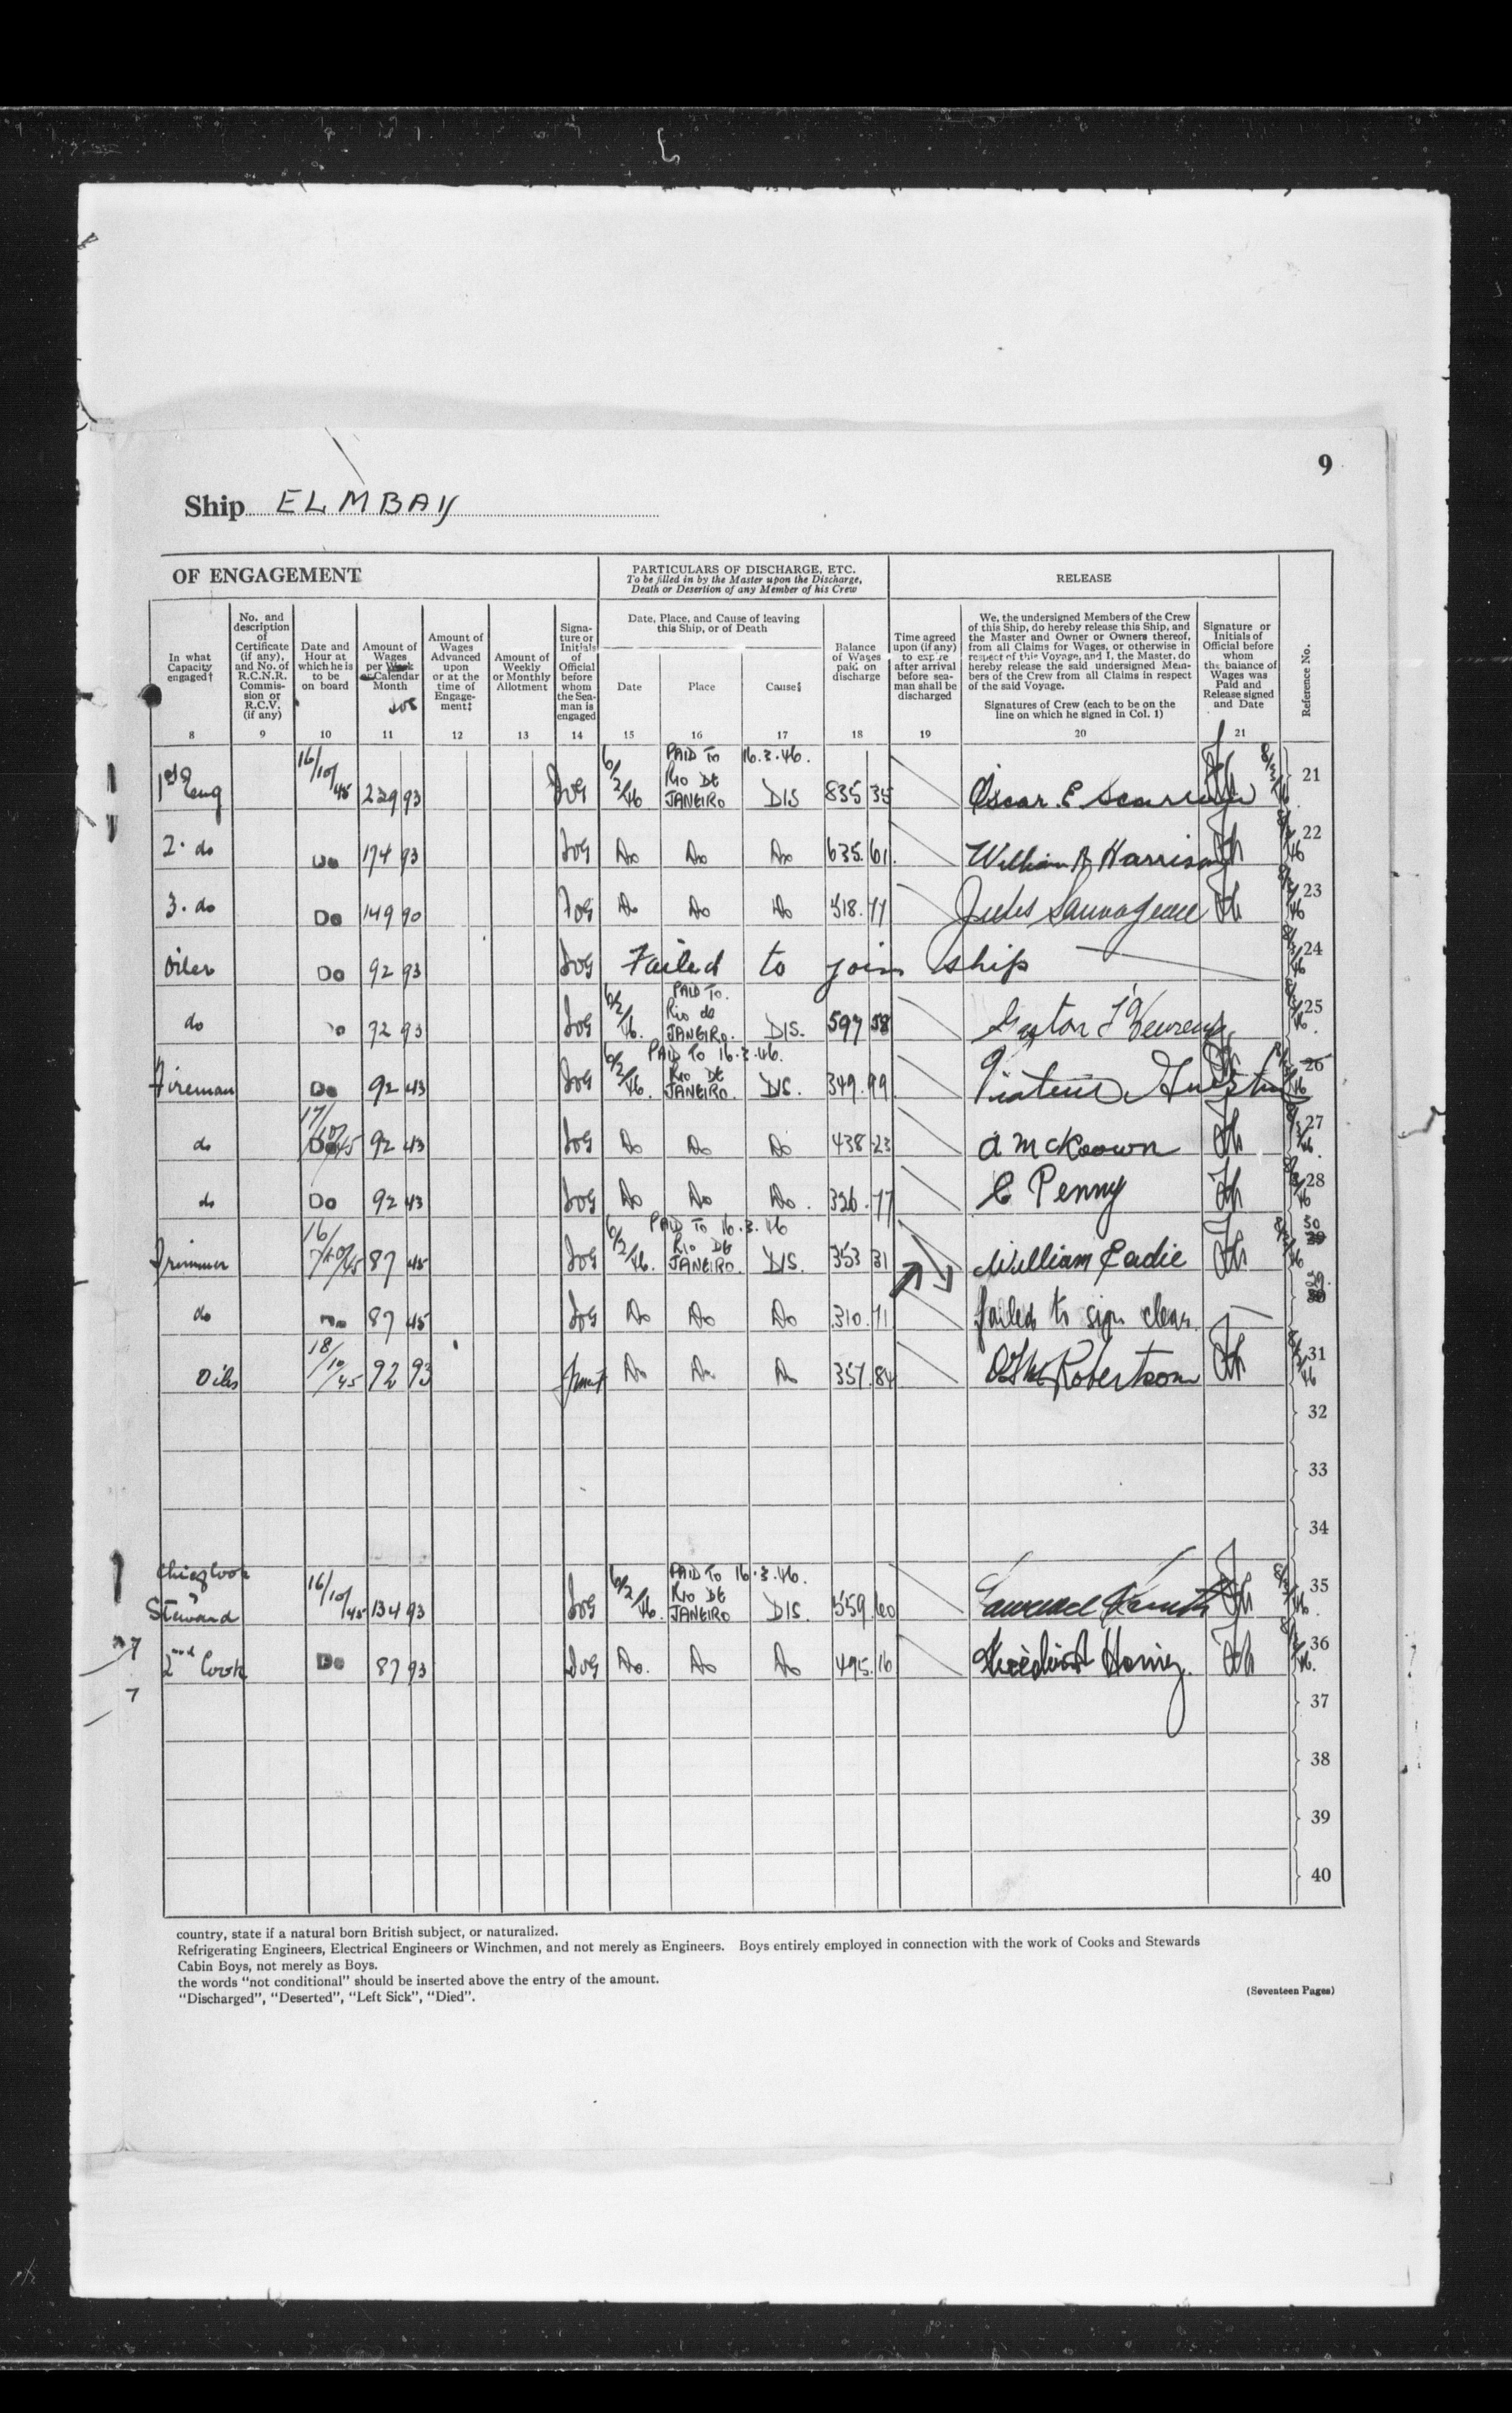 9
Ship ELMBAY
OF ENGAGEMENT
PARTICULARS OF DISCHARGE, ETC.
To be filled in by the Master upon the Discharge,
Death or Desertion of any Member of his Crew
RELEASE
In what
Capacity
engaged†
No. and
description
of
Certificate
(if any),
and No. of
R.C.N.R.
Commis-
sion or
R.C.V.
(if any)
Date and
Hour at
which he is
to be
on board
Amount of
Wages
per Week
or Calendar
Month
Amount of
Wages
Advanced
upon
or at the
time of
Engage-
ment‡
Amount of
Weekly
or Monthly
Allotment
Signa-
ture or
Initials
of
Official
before
whom
the Sea-
man is
engaged
Date, Place, and Cause of leaving
this Ship, or of Death
Date
Place
Cause§
Balance
of Wages
paid on
discharge
Time agreed
upon (if any)
to expire
after arrival
before sea-
man shall be
discharged
We, the undersigned Members of the Crew
of this Ship, do hereby release this Ship, and
the Master and Owner or Owners thereof,
from all Claims for Wages, or otherwise in
respect of this Voyage, and I, the Master, do
hereby release the said undersigned Mem-
bers of the Crew from all Claims in respect
of the said Voyage.
Signatures of Crew (each to be on the
line on which he signed in Col. 1)
Signature or
Initials of
Official before
whom
the balance of
Wages was
Paid and
Release signed
and Date
Reference No.
8 9 10 11 12 13 14 15 16 17 18 19 20 21
1st Eng 16/10/45 229 93 6/2/46 PAID TO 16.3.46. RIO DE JANEIRO DIS 835 35 Oscar E 21
2. do Do 174 93 Do Do Do 635 61 William A Harrison 22
3. do Do 149 90 Do Do Do 518.77 Jules Sauvageau 23
Oiler Do 92 93 Failed to join ship 24
do Do 92 93 6/2/46. PAID TO. Rio de JANEIRO. DIS. 597 58 25
Fireman Do 92 43 6/2/46. PAID TO 16.3.46. RIO DE JANEIRO. DIS. 349.99 26
do 17/10/45 92 43 Do Do Do 438 23 A McKeown 27
do Do 92 43 Do Do Do. 326.77 C Penny 28
Trimmer 16/10/45 87 45 6/2/46. PAID TO 16.3.46 RIO DE JANEIRO. DIS. 353 31 William Eadie 30
do Do 87 45 Do Do Do 310.71 failed to sign clear 29.
Oiler 18/10/45 92 93 Do Do Do 357.84 Robertson 31
32
33
34
Chief Cook
Steward 16/10/45 134 93 6/2/46. PAID TO 16.3.46. RIO DE JANEIRO DIS. 559 60 35
2nd Cook Do 87 93 Do. Do Do 495.16 36
37
38
39
40
country, state if a natural born British subject, or naturalized.
Refrigerating Engineers, Electrical Engineers or Winchmen, and not merely as Engineers. Boys entirely employed in connection with the work of Cooks and Stewards
Cabin Boys, not merely as Boys.
the words "not conditional" should be inserted above the entry of the amount.
"Discharged", "Deserted", "Left Sick", "Died".
(Seventeen Pages)